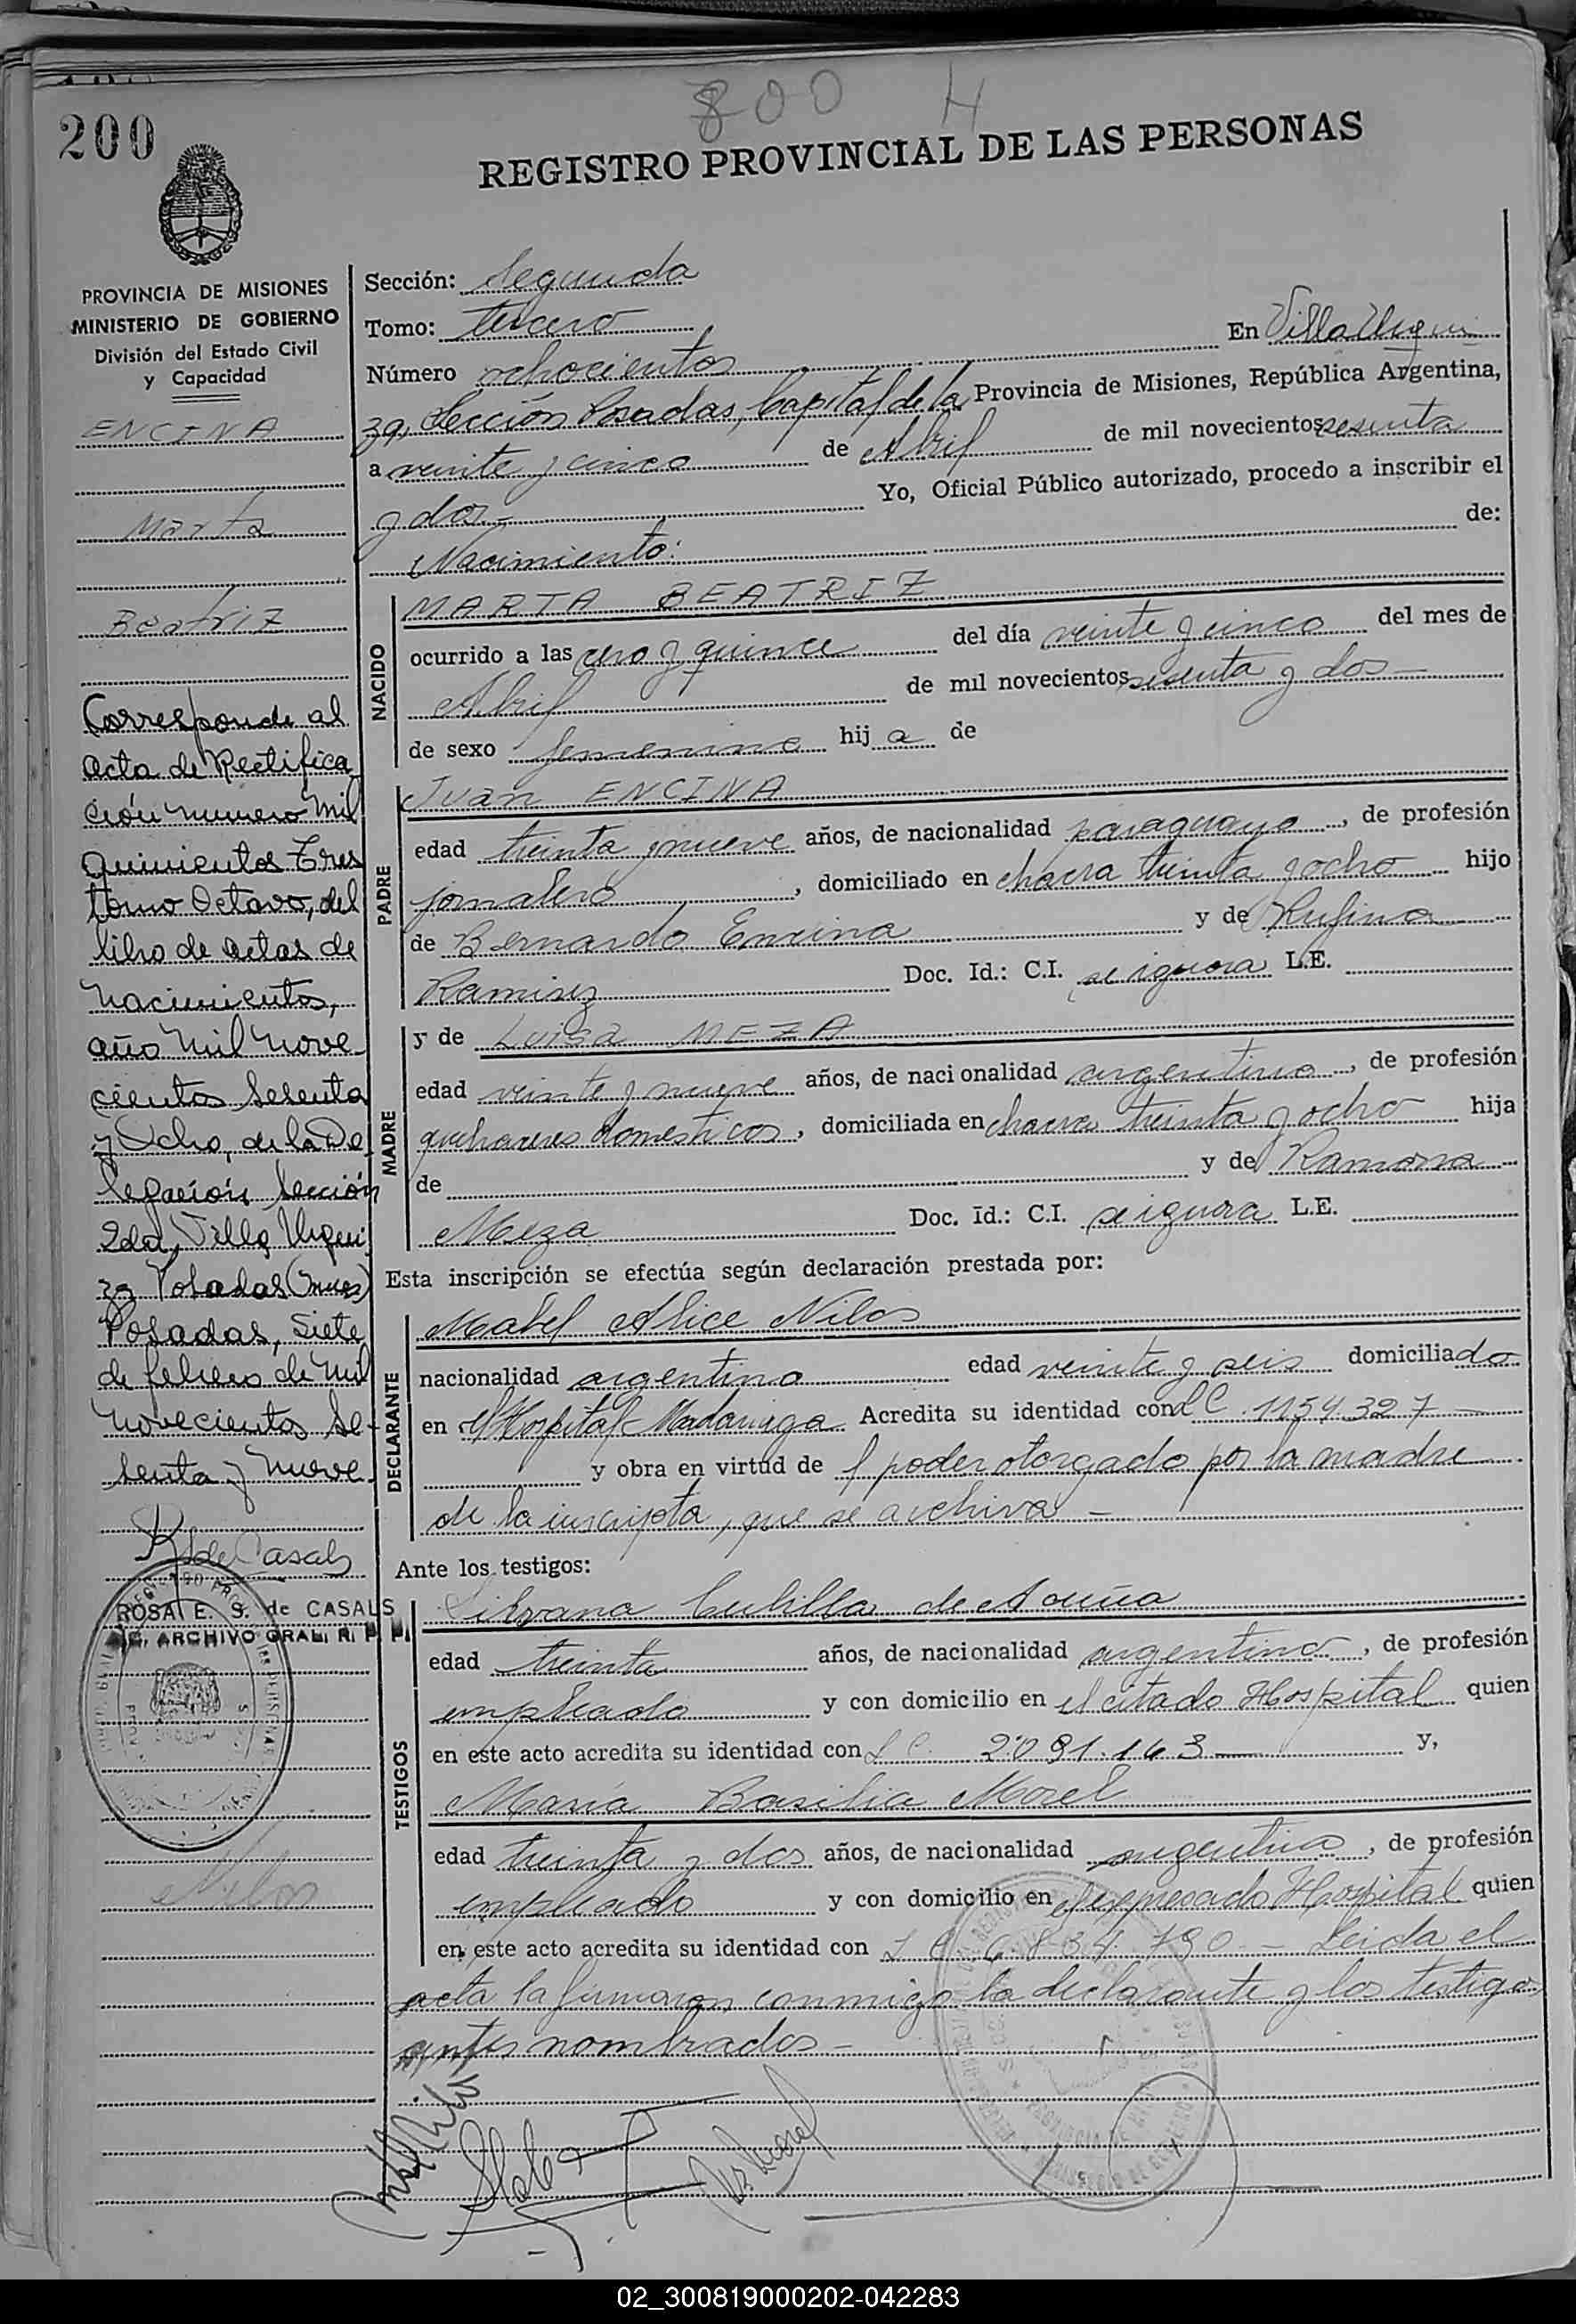 800 H
200
REGISTRO PROVINCIAL DE LAS PERSONAS
PROVINCIA DE MISIONES
MINISTERIO DE GOBIERNO
División del Estado Civil
y Capacidad
ENCINA
Marta
Beatriz
Corresponde al
acta de Rectifica
ción número mil
quinientos Tres
tomo Octavo, del
libro de actas de
nacimientos,
año mil nove
cientos sesenta
y Ocho, de la De
legación Sección
2da, Villa Urqui
za Posadas (Mnes)
Posadas, siete
de febrero de mil
novecientos se-
senta y nueve
R. de Casals
ROSA E. S. de CASALS
ARCHIVO GRAL. R. P. P.
Sección: Segunda
Tomo: tercero
Número ochocientos En Villa Urqui
za, Sección Posadas, Capital de la Provincia de Misiones, República Argentina,
a veinte y cinco de Abril de mil novecientos sesenta
y dos Yo, Oficial Público autorizado, procedo a inscribir el
Nacimiento: de:
NACIDO
MARTA BEATRIZ
ocurrido a las cero y quince del día veinte y cinco del mes de
Abril de mil novecientos sesenta y dos
de sexo femenino hij a de
PADRE
Juan ENCINA
edad treinta y nueve años, de nacionalidad paraguayo, de profesión
jornalero, domiciliado en chacra treinta y ocho hijo
de Bernardo Encina y de Rufina
Ramirez Doc. Id.: C.I. se ignora L.E.
MADRE
y de Luisa MEZA
edad veinte y nueve años, de nacionalidad argentina, de profesión
quehaceres domesticos, domiciliada en chacra treinta y ocho hija
de y de Ramona
Meza Doc. Id.: C.I. se ignora L.E.
Esta inscripción se efectúa según declaración prestada por:
DECLARANTE
Mabel Alice Nilos
nacionalidad argentina edad veinte y seis domiciliado
en el Hospital Madariaga Acredita su identidad con L C 1154.327
y obra en virtud de l poder otorgado por la madre
de la inscripta, que se archiva -
Ante los testigos:
TESTIGOS
Silvana Cubilla de Acuña
edad treinta años, de nacionalidad argentina, de profesión
empleada y con domicilio en el citado Hospital quien
en este acto acredita su identidad con L C. 2.091.163 y,
María Basilia Morel
edad treinta y dos años, de nacionalidad argentina, de profesión
empleada y con domicilio en el expresado Hospital quien
en este acto acredita su identidad con L C 6.834.790 - Leida el
acta la firmaron conmigo la declarante y los testigos
antes nombrados -
02_300819000202-042283